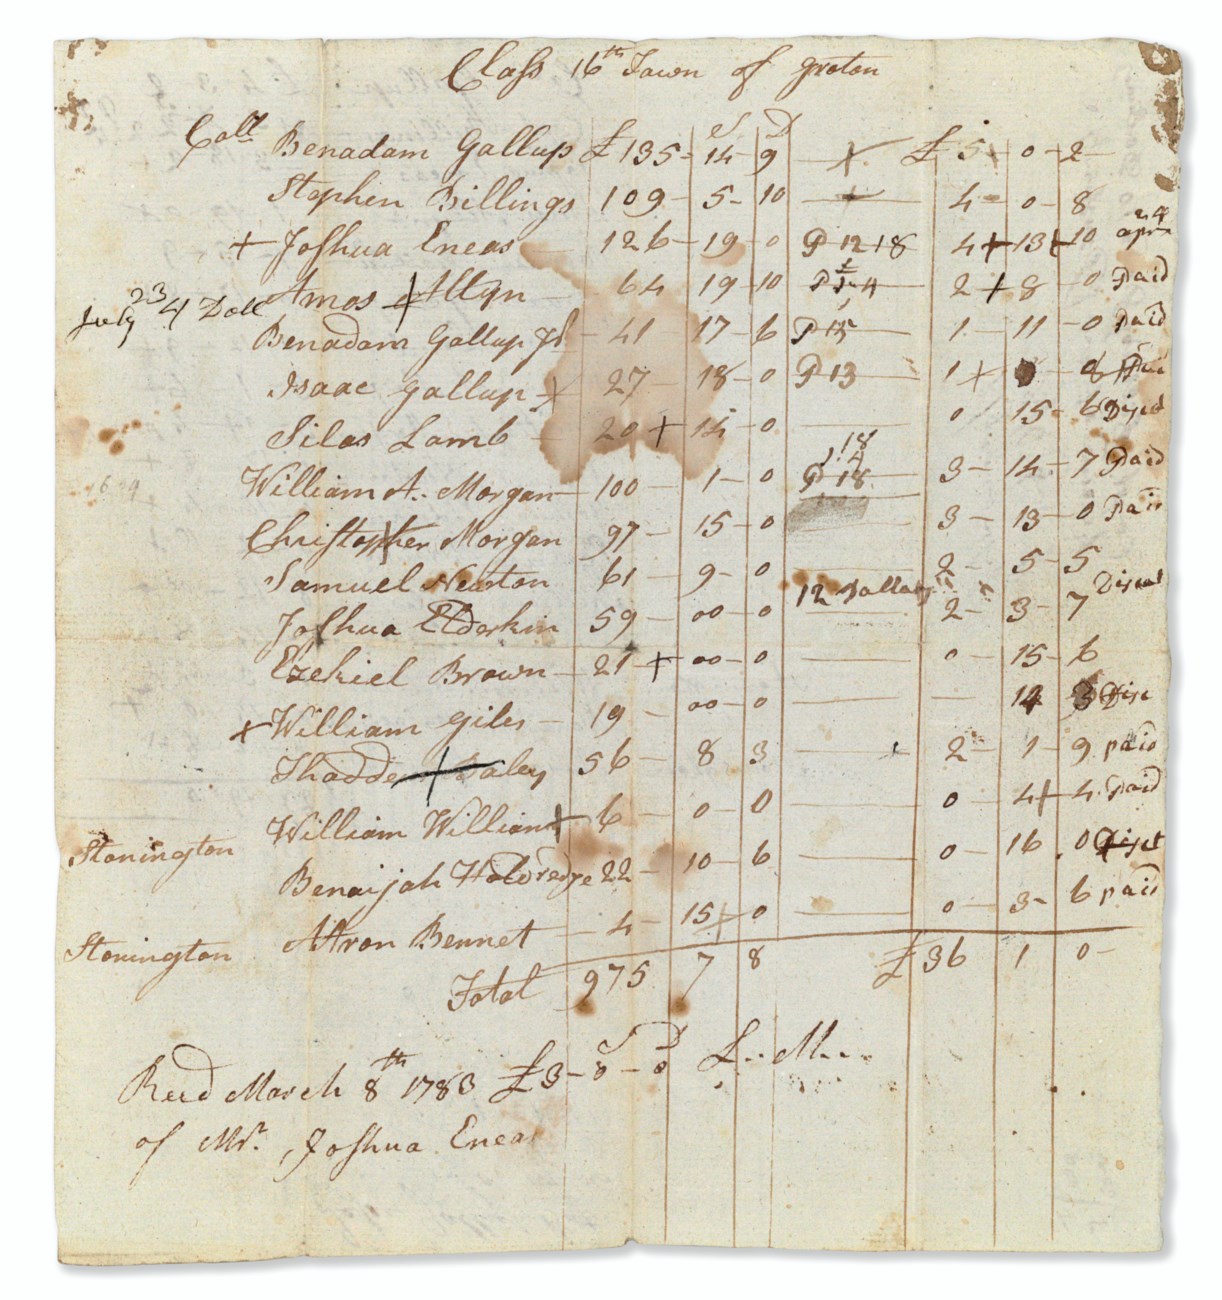 Class 16th Town of Groton
S D
Coll Benadam Gallup £ 135 - 14 - 9 — + £ 5 - 0 - 2 -
Stephen Billings 109 - 5 - 10 — + — 4 - 0 - 8
+ Joshua Eneas 126 - 19 - 0 P 12 18 4 + 13 + 10
July 23 4 Doll Amos Allyn 64 19 - 10 2 + 8 - 0 Paid
Benadam Gallup Jr - 41 - 17 - 6 P 15 — 1 - 11 - 0 Paid
Isaac Gallup - + 27 - 18 - 0 P 13 — 1 +
Silas Lamb - 20 + 14 - 0 — 0 15 - 6
William A. Morgan - 100 - 1 - 0 P 18 — 3 - 14 - 7 Paid
Christopher Morgan 97 - 15 - 0 — 3 - 13 - 0 Paid
Samuel Newton 61 - 9 - 0 2 - 5 - 5
Joshua Elderkin 59 - 00 - 0 12 Dollars 2 - 3 - 7
Ezekiel Brown - 21 + 00 - 0 — 0 - 15 - 6
+ William Giles - 19 - 00 - 0 — — 14 3
Thadde Daley 56 - 8 - 3 — 2 - 1 - 9 paid
William Williams + 6 - 0 - 0 — 0 - 4 + 4 paid
Stonington
Benaijah Holdredge 22 - 10 - 6 — 0 - 16 . 0
Stonington Attron Bennet - 4 - 15 + 0 — 0 - 3 - 6 paid
Total 975 7 8 £ 36 1 0 -
S D
Recd March 8th 1783 £3 - 8 - 0 L .. M ...
of Mr. Joshua Eneas